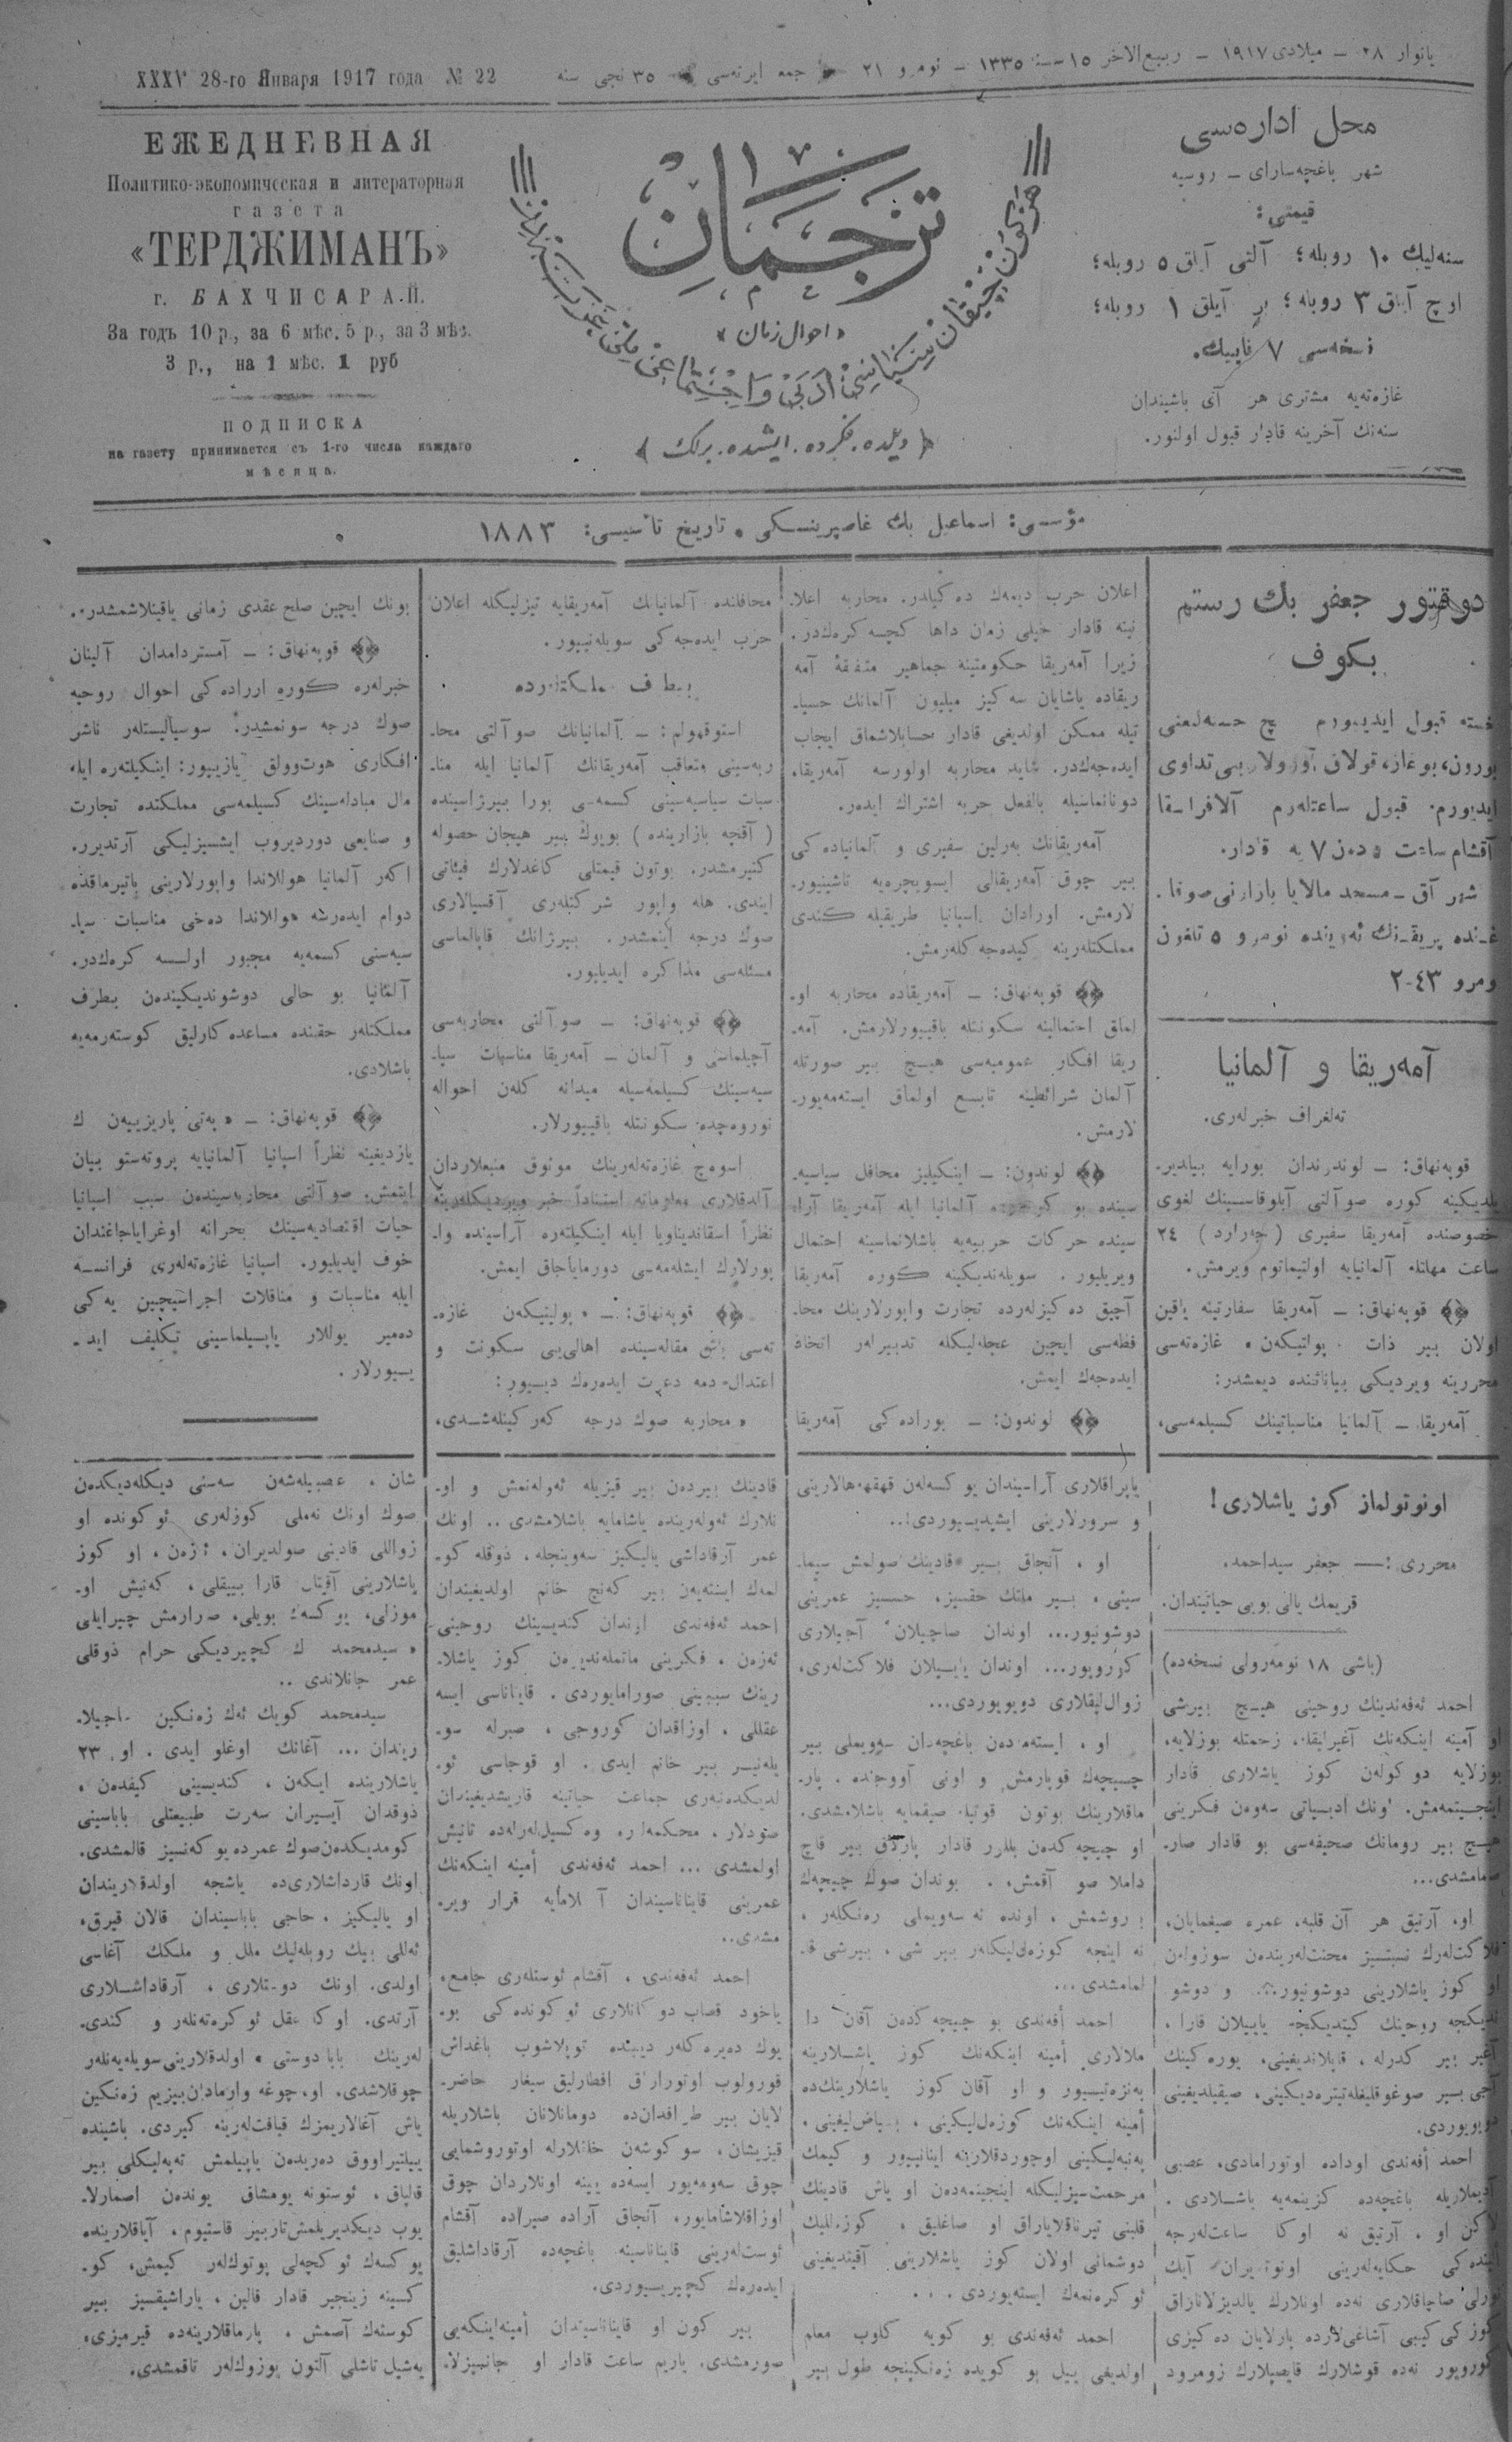 XXXV 28-го Января 1917 года № 22
يانوار ٢٨ – ميلادی ١٩١٧ – ربيع الاخر ١٥ سنهٔ ١٣٣٥ – نومرو ٢١ جمعه ايرته‌سی ٣٥ نجی سنه
ЕЖЕДНЕВНАЯ
Политико-экономическая и литераторная
газета
«ТЕРДЖИМАНЪ»
г. БАХЧИСАРАЙ.
За годъ 10 р., за 6 мѣс. 5 р., за 3 мѣс.
3 р., на 1 мѣс. 1 руб
ПОДПИСКА
на газету принимается съ 1-го числа каждаго
мѣсяца.
ترجمان
«احوال زمان»
ديلده. فكرده. ايشده. برلك
محل اداره‌سی
شهر باغچه‌سارای – روسيه
قيمتی:
سنه‌ليك ١٠ روبله؛ آلتی آيلق ٥ روبله؛
اوچ آيلق ٣ روبله؛ بر آيلق ١ روبله؛
نسخه‌سی ٧ قاپيك.
غازه‌ته‌يه مشتری هر آی باشيندان
سنه‌نك آخرينه قادار قبول اولنور.
مؤسسی: اسماعيل بك غاصپرينسكی • تاريخ تأسيسی: ١٨٨٣
دوقتور جعفر بك رستم
بكوف
بورون، بوغاز، قولاق
ايديورم. قبول ساعتلرم آلافرانقا
آقشام ساعت ٥ دن ٧ يه قادار.
شهر آق – مسجد مالايا بازارنی صوقا
ومرو ٤٣-٢
آمه‌ريقا و آلمانيا
ته‌لغراف خبرله‌ری.
قوپه‌نهاق: – لوندرندان بورايه بيلدير-
يلديكينه كوره صو آلتی آبلوقاسينك لغوی
خصوصنده آمه‌ريقا سفيری (جه‌رارد) ٢٤
ساعت مهلتله آلمانيايه اولتيماتوم ويرمش.
قوپه‌نهاق: – آمه‌ريقا سفارتينه ياقين
اولان بير ذات پوليتيكه‌ن غازه‌ته‌سی
محررينه ويرديكی بياناتنده ديمشدر:
آمه‌ريقا – آلمانيا مناسباتينك كسيلمه‌سی،
اعلان حرب ديمه‌ك ده‌كيلدر. محاربه اعلا-
نينه قادار خيلی زمان داها كچسه كره‌ك‌در.
زيرا آمه‌ريقا حكومتينه جماهير متفقهٔ آمه
ريقاده ياشايان سه‌كيز ميليون آلمانك حسيا-
تيله ممكن اولديغی قادار حسابلاشماق ايجاب
ايده‌جه‌ك‌در. شايد محاربه اولورسه آمه‌ريقا،
دونانماسيله بالفعل حربه اشتراك ايده‌ر.
آمه‌ريقانك به‌رلين سفيری و آلمانياده كی
بير چوق آمه‌ريقالی ايسويچره‌يه تاشينيور-
لارمش. اورادان اسپانيا طريقيله كندی
مملكتله‌رينه كيده‌جه كله‌رمش.
قوپه‌نهاق: – آمه‌ريقاده محاربه او-
لماق احتمالينه سكونتله باقييورلارمش. آمه-
ريقا افكار عموميه‌سی هيچ بير صورتله
آلمان شرائطينه تابع اولماق ايسته‌مه‌يور-
لارمش.
لوندون: – اينكيليز محافل سياسيه-
سينده بو كون آلمانيا ايله آمه‌ريقا آرا-
سينده حركات حربيه‌يه باشلانماسينه احتمال
ويريليور. سويله‌نديكينه كوره آمه‌ريقا
آچيق ده‌كيزله‌رده تجارت واپورلارينك محا-
فظه‌سی ايچين عجله‌ليكله تدبيرله‌ر اتخاذ
ايده‌جه‌ك ايمش.
لوندون: – بوراده كی آمه‌ريقا
محافلنده آلمانيانك آمه‌ريقايه تيزليكله اعلان
حرب ايده‌جه كی سويله‌نييور.
بيطرف مملكتلرده
استوقهولم: – آلمانيانك صو آلتی محا-
ربه‌سينی متعاقب آمه‌ريقانك آلمانيا ايله منا-
سبات سياسيه‌سينی كسمه‌سی بورا بيرژاسينده
(آقچه بازارينده) بويوك بير هيجان حصوله
كتيرمشدر. بوتون قيمتلی كاغدلارك فيئاتی
ايندی. هله واپور شركتله‌ری آقسيالاری
صوك درجه اينمشدر. بيرژانك قاپالماسی
مسئله‌سی مذاكره ايديليور.
قوپه‌نهاق: – صو آلتی محاربه‌سی
آچيلماسی و آلمان – آمه‌ريقا مناسبات سيا-
سيه‌سينك كسيلمه‌سيله ميدانه كلن احواله
نوروه‌چده سكونتله باقييورلار.
اسوه‌چ غازه‌ته‌له‌رينك موثوق منبعلاردان
آلدقلاری معلوماته استناداً خبر ويرديكله‌رينه
نظراً اسقانديناويا ايله اينكيلته‌ره آراسينده وا-
پورلارك ايشله‌مه‌سی دورماياجاق ايمش.
قوپه‌نهاق: – «پوليتيكه‌ن» غازه-
ته‌سی باش مقاله‌سينده اهالی‌يی سكونت و
اعتدال دمه دعوت ايده‌ره‌ك دييور:
«محاربه صوك درجه كه‌ركينله‌شدی،
بونك ايچين صلح عقدی زمانی ياقينلاشمشدر».
قوپه‌نهاق: – آمستردامدان آلينان
خبرله‌ره كوره اوراده كی احوال روحيه
صوك درجه سونمشدر. سوسياليستله‌ر ناشر
افكاری هوت‌وولق يازييور: اينكيلته‌ره ايله
مال مبادله‌سينك كسيلمه‌سی مملكتده تجارت
و صنايعی دورديروب ايشسيزليكی آرتديرر.
اكه‌ر آلمانيا هوللاندا واپورلارينی باتيرماقده
دوام ايده‌رسه هوللاندا ده‌خی مناسبات سيا-
سيه‌سنی كسمه‌يه مجبور اولسه كره‌ك‌در.
آلمانيا بو حالی دوشونديكيندن بيطرف
مملكتله‌ر حقنده مساعده كارليق كوسته‌رمه‌يه
باشلادی.
قوپه‌نهاق: – «په‌تی پاريزييه‌ن» ك
يازديغينه نظراً اسپانيا آلمانيايه پروته‌ستو بيان
ايتمش. صو آلتی محاربه‌سيندن سبب اسپانيا
حيات اقتصاديه‌سينك بحرانه اوغراياجاغندان
خوف ايديليور. اسپانيا غازه‌ته‌له‌ری فرانسه
ايله مناسبات و مناقلات اجراسيچين يه كی
ده‌مير يوللار ياپيلماسينی تكليف ايد-
ييورلار.
اونوتولماز كوز ياشلاری!
محرری: — جعفر سيداحمد.
قريمك يالی بويی حياتيندان.
(باشی ١٨ نومه‌رولی نسخه‌ده)
احمد ئه‌فه‌ندينك روحينی هيچ بيرشی
او آمينه اينكه‌نك آغيرلقله، زحمتله بوزلايه،
بوزلايه دوكولن كوز ياشلاری قادار
اينجيتمه‌مش. اونك ادبياتی سه‌وه‌ن فكرينی
هيچ بير رومانك صحيفه‌سی بو قادار صار-
صمامشدی...
او، آرتيق هر آن قلبه، عمره صيغمايان،
فلاكت‌له‌رك نسبتسيز محنت‌له‌ريندن سوزولن
او كوز ياشلارينی دوشونيور... و دوشو
نديكجه روحينك كيتديكجه ياپيلان قارا،
آغير بير كدرله، قاپلانديغينی، يوره كينك
آجی بير صوغوقليغله تيتره‌ديكينی، صيقيلديغينی
دويويوردی.
احمد أفه‌ندی اوداده اوتورامادی، عصبی
آديملاريله باغچه‌ده كزينمه‌يه باشلادی.
لاكن او، آرتيق نه اوكا ساعت‌له‌رجه
ياپراقلاری آراسيندان يوكسه‌لن قهقهه‌لارينی
و سرورلارينی ايشيديوردی!..
او، آنجاق بير قادينك صولمش سيما-
سينی، بير ملتك حقسيز، حسسيز عمرينی
دوشونيور... اوندان صاچيلان آجيلاری
كورويور... اوندان ياييلان فلاكت‌له‌ری،
زوال‌ليقلاری دويويوردی...
او، ايسته‌مه‌دن باغچه‌دان سه‌ويملی بير
چيچه‌ك قوپارمش و اونی آووجنده، پار-
ماقلارينك بوتون قوتيله صيقمايه باشلامشدی.
او چيچه كدن بللور قادار پارلاق بير قاچ
داملا صو آقمش. بوندان صوك چيچه‌ك
بوروشمش، اونده نه سه‌ويملی ره‌نكلر،
نه اينجه كوزه‌ل‌ليكلر بير شی، بيرشی قا-
لمامشدی...
احمد أفه‌ندی بو چيچه كدن آقان دا
ملالاری أمينه اينكه‌نك كوز ياشلارينه
به‌نزه‌تيور و او آقان كوز ياشلارينك‌ده
أمينه اينكه‌نك كوزه‌ل‌ليكينی، بياض‌ليغينی،
په‌نبه‌ليكينی اوچوردقلارينه اينانييور و كيمك
مرحمت‌سيزليكله اينجينمه‌دن او ياش قادينك
قلبنی تيرناقلاياراق او صاغليق، كوزه‌لليك
دوشمانی اولان كوز ياشلارينی آقيتديغينی
ئوكره‌نمه‌ك ايسته‌يوردی...
احمد ئه‌فه‌ندی بو كويه كلوب معلم
اولديغی ييل بو كويده زه‌نكينجه طول بير
قادينك بيردن بير قيزيله ئه‌وله‌نمش و او-
نلارك ئه‌وله‌رينده ياشامايه باشلامشدی.. اونك
عمر آرقاداشی ياليكيز سه‌وينجله، ذوقله كو-
لمه‌ك ايسته‌يه‌ن بير كه‌نج خانم اولديغيندان
احمد ئه‌فه‌ندی اوندان كنديسينك روحينی
ئه‌زه‌ن، فكرينی ماتمله‌نديره‌ن كوز ياشلا-
رينك سببينی صوراماوردی. قايناناسی ايسه
عقللی، اوزاقدان كوروجی، صبرله سو-
يله‌نير بير خانم ايدی. او قوجاسی ئو-
لديكدنبه‌ری جماعت حياتينه قاريشديغيندان
اولمشدی... احمد ئه‌فه‌ندی أمينه اينكه‌نك
عمرينی قايناناسيندان آكلامايه قرار وير-
مشدی..
احمد ئه‌فه‌ندی، آقشام ئوستله‌ری جامع،
ياخود قصاب دوكانلاری ئوكونده كی بو-
يوك ده‌يره كله‌ر ديبنده توپلاشوب باغداش
قورولوب اوتوراراق افطارليق سيغار حاضر-
لايان بير طرافدان‌ده دومانلانان باشلاريله
قيزيشان، سوكوشه‌ن خلقلارله اوتوروشمايی
چوق سه‌ومه‌يور ايسه‌ده يينه اونلاردان چوق
اوزاقلاشامايور، آنجاق آراده صيراده آقشام
ئوست‌له‌رينی قايناناسينه باغچه‌ده آرقاداشليق
ايده‌ره‌ك كچيرييوردی.
بير كون او قايناناسيندان أمينه اينكه‌يی
صورمشدی. ياريم ساعت قادار او جانسيزلا-
شان، عصبيله‌شه‌ن سه‌سنی ديكله‌ديكدن
صوك اونك نه‌ملی كوزله‌ری ئوكونده او
زواللی قادينی صولديران، ئه‌زه‌ن، او كوز
ياشلارينی آقيتان قارا بييقلی، كه‌نيش او-
موزلی، يوكسه‌ك بويلی، صارارمش چيرايلی
«سيدمحمد» ك كچيرديكی حرام ذوقلی
عمر جانلاندی..
سيدمحمد كويك ئه‌ك زه‌نكين حاجيلا-
ريندان... آغانك اوغلو ايدی. او، ٢٣
ياشلارينده ايكه‌ن، كنديسينی كيفدن،
ذوقدان آييران سه‌رت طبيعتلی باباسينی
كومديكدن صوك عمرده يوكه‌نسيز قالمشدی.
اونك قارداشلاری‌ده ياشجه اولدقلاريندان
او ياليكيز، حاجی باباسيندان قالان قيرق،
ئه‌للی بيك روبله‌ليك ملل و ملكك آغاسی
اولدی. اونك دوستلاری، آرقاداشلاری
آرتدی. اوكا عقل ئوكره‌ته‌نله‌ر و كندی-
له‌رينك «بابا دوستی» اولدقلارينی سويله‌يه‌نله‌ر
چوقلاشدی، او، چوغه وارمادان بيزيم زه‌نكين
ياش آغالاريمزك قيافت‌له‌رينه كيردی. باشينده
بيلتيراووق ده‌ريدن ياپيلمش ته‌په‌ليكلی بير
قالپاق، ئوستونه يومشاق يوندن اصمارلا-
يوب ديكديريلمش تاربيز قاستيوم، آياقلارينده
يوكسه‌ك ئوكچه‌لی بوتوك‌له‌ر كيمش، كو-
كسينه زينجير قادار قالين، ياراشيقسيز بير
كوسته‌ك آصمش، پارماقلارينه‌ده قيرميزی،
يه‌شيل تاشلی آلتون يوزوك‌له‌ر تاقمشدی.